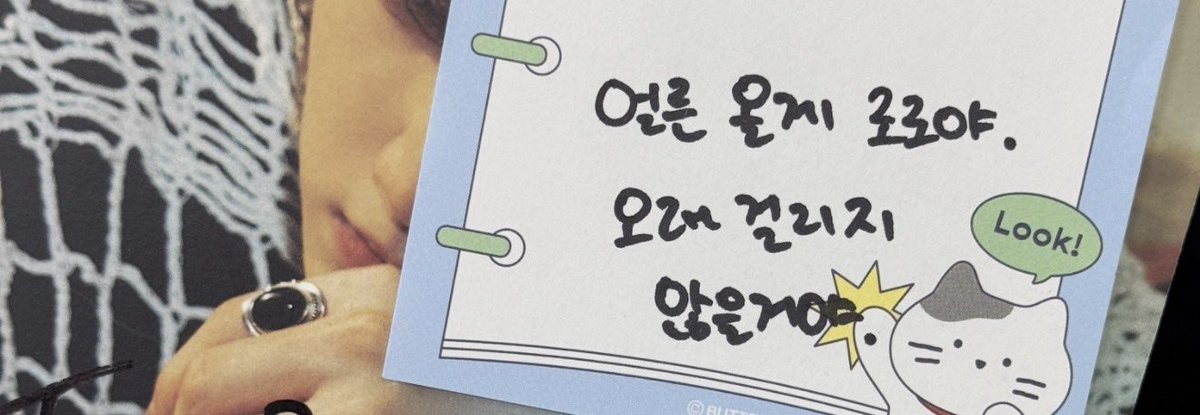 얼른 올게 로로야.
오래 걸리지
않을거야
Look!